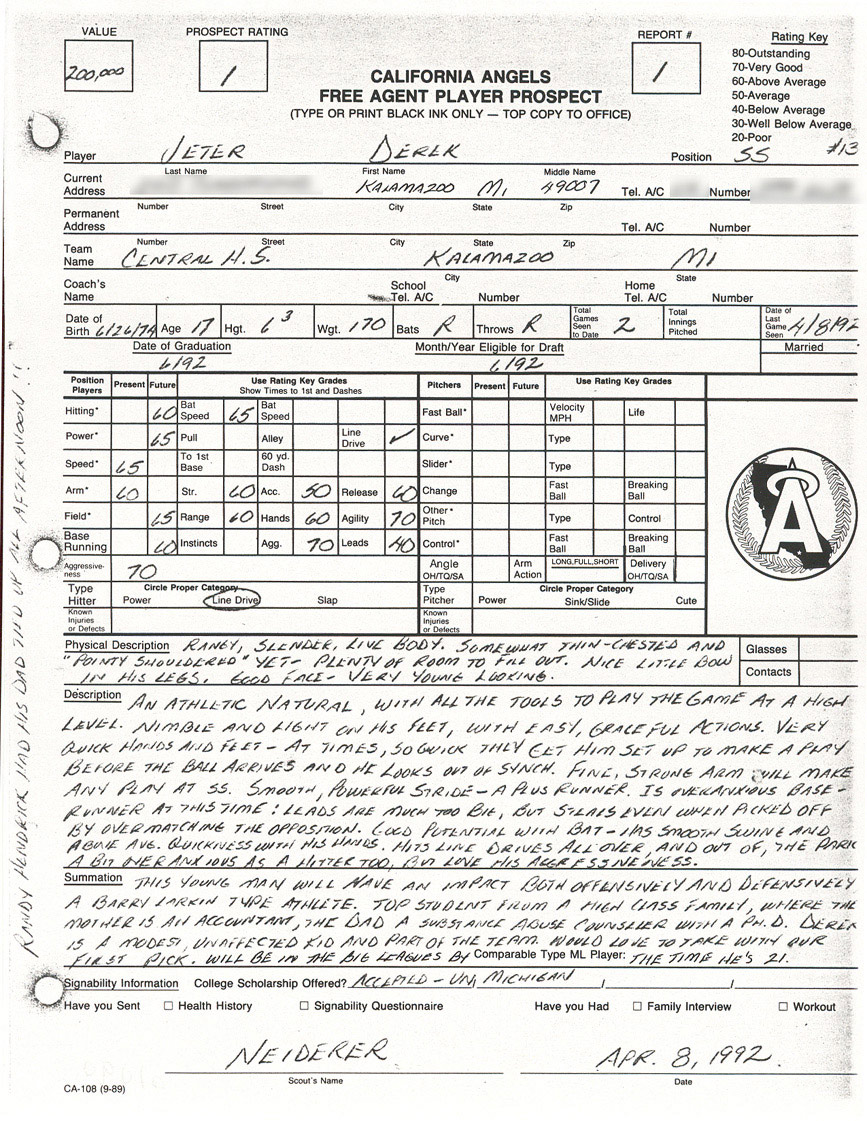 VALUE
200,000
PROSPECT RATING
1
REPORT #
1
Rating Key
80-Outstanding
70-Very Good
60-Above Average
50-Average
40-Below Average
30-Well Below Average
20-Poor
CALIFORNIA ANGELS
FREE AGENT PLAYER PROSPECT
(TYPE OR PRINT BLACK INK ONLY — TOP COPY TO OFFICE)
Player JETER DEREK Position SS #13
Last Name First Name Middle Name
Current Address KALAMAZOO MI 49007 Tel. A/C Number
Number Street City State Zip
Permanent Address Tel. A/C Number
Number Street City State Zip
Team Name CENTRAL H.S. KALAMAZOO MI
City State
Coach's Name School Tel. A/C Number Home Tel. A/C Number
Date of Birth 6/26/74 Age 17 Hgt. 6 3 Wgt. 170 Bats R Throws R Total Games Seen to Date 2 Total Innings Pitched Date of Last Game Seen 4/8/92
Date of Graduation Month/Year Eligible for Draft Married
6/92 6/92
Position Players Present Future Use Rating Key Grades Show Times to 1st and Dashes Pitchers Present Future Use Rating Key Grades
Hitting* 60 Bat Speed 65 Bat Speed Fast Ball* Velocity MPH Life
Power* 65 Pull Alley Line Drive ✓ Curve* Type
Speed* 65 To 1st Base 60 yd. Dash Slider* Type
Arm* 60 Str. 60 Acc. 50 Release 60 Change Fast Ball Breaking Ball
Field* 65 Range 60 Hands 60 Agility 70 Other* Pitch Type Control
Base Running 60 Instincts Agg. 70 Leads 40 Control* Fast Ball Breaking Ball
Aggressive-ness 70 Angle OH/TQ/SA Arm Action LONG,FULL,SHORT Delivery OH/TQ/SA
Type Hitter Circle Proper Category Power Line Drive Slap Type Pitcher Circle Proper Category Power Sink/Slide Cute
Known Injuries or Defects Known Injuries or Defects
A
Physical Description RANGY, SLENDER, LIVE BODY. SOMEWHAT THIN-CHESTED AND
"POINTY SHOULDERED" YET - PLENTY OF ROOM TO FILL OUT. NICE LITTLE BOW
IN HIS LEGS. GOOD FACE - VERY YOUNG LOOKING.
Glasses
Contacts
Description AN ATHLETIC NATURAL, WITH ALL THE TOOLS TO PLAY THE GAME AT A HIGH
LEVEL. NIMBLE AND LIGHT ON HIS FEET, WITH EASY, GRACEFUL ACTIONS. VERY
QUICK HANDS AND FEET - AT TIMES, SO QUICK THEY GET HIM SET UP TO MAKE A PLAY
BEFORE THE BALL ARRIVES AND HE LOOKS OUT OF SYNCH. FINE, STRONG ARM WILL MAKE
ANY PLAY AT SS. SMOOTH, POWERFUL STRIDE - A PLUS RUNNER. IS OVERANXIOUS BASE-
RUNNER AT THIS TIME: LEADS ARE MUCH TOO BIG, BUT STEALS EVEN WHEN PICKED OFF
BY OVERMATCHING THE OPPOSITION. GOOD POTENTIAL WITH BAT - HAS SMOOTH SWING AND
ABOVE AVG. QUICKNESS WITH HIS HANDS. HITS LINE DRIVES ALL OVER, AND OUT OF, THE PARK
A BIT OVERANXIOUS AS A HITTER TOO, BUT LOVE HIS AGGRESSIVENESS.
Summation THIS YOUNG MAN WILL HAVE AN IMPACT BOTH OFFENSIVELY AND DEFENSIVELY
A BARRY LARKIN TYPE ATHLETE. TOP STUDENT FROM A HIGH CLASS FAMILY, WHERE THE
MOTHER IS AN ACCOUNTANT, THE DAD A SUBSTANCE ABUSE COUNSELER WITH A PH.D. DEREK
IS A MODEST, UNAFFECTED KID AND PART OF THE TEAM. WOULD LOVE TO TAKE WITH OUR
FIRST PICK. WILL BE IN THE BIG LEAGUES BY Comparable Type ML Player: THE TIME HE'S 21.
Signability Information College Scholarship Offered? ACCEPTED - UN. MICHIGAN / /
Have you Sent ☐ Health History ☐ Signability Questionnaire Have you Had ☐ Family Interview ☐ Workout
NEIDERER APR. 8, 1992
Scout's Name Date
CA-108 (9-89)
RANDY HENDRICK HAD HIS DAD TIED UP ALL AFTERNOON!!